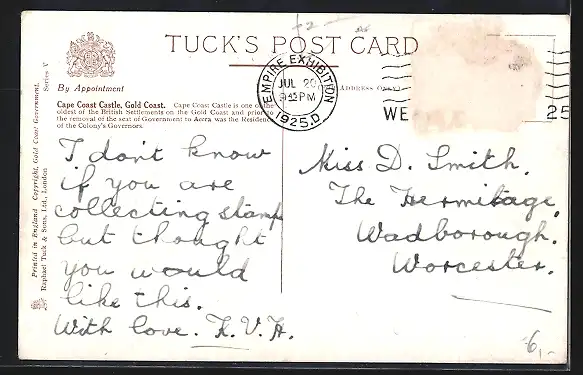 TUCK'S POST CARD
By Appointment
Series V
(ADDRESS ONLY)
Cape Coast Castle, Gold Coast. Cape Coast Castle is one of the
oldest of the British Settlements on the Gold Coast and prior to
the removal of the seat of Government to Accra was the Residence
of the Colony's Governors.
Printed in England Copyright, Gold Coast Government.
Raphael Tuck & Sons, Ltd., London
EMPIRE EXHIBITION
JUL 20
PM
1925.D
WE
25
I don't know
if you are
collecting stamps
but thought
you would
like this.
With love. K.V.H.
Miss D. Smith.
The Hermitage,
Wadborough.
Worcester.
6,-